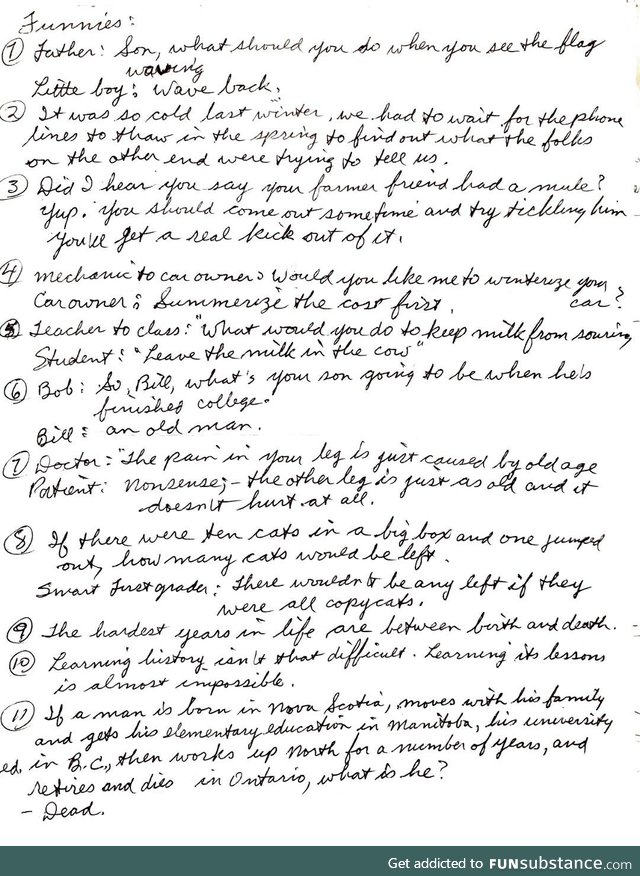 Funnies:
① Father: Son, what should you do when you see the flag
waving
Little boy: Wave back.
② It was so cold last winter, we had to wait for the phone
lines to thaw in the spring to find out what the folks
on the other end were trying to tell us.
③ Did I hear you say your farmer friend had a mule?
Yup. You should come out sometime and try tickling him
You'll get a real kick out of it.
④ Mechanic to car owner: Would you like me to winterize your
car?
Car owner: Summerize the cost first.
⑤ Teacher to class: "What would you do to keep milk from souring
Student: "Leave the milk in the cow"
⑥ Bob: So, Bill, what's your son going to be when he's
finished college.
Bill: an old man.
⑦ Doctor: "The pain in your leg is just caused by old age
Patient: Nonsense; - the other leg is just as old and it
doesn't hurt at all.
⑧ If there were ten cats in a big box and one jumped
out, how many cats would be left.
Smart First grader: There wouldn't be any left if they
were all copycats.
⑨ The hardest years in life are between birth and death.
⑩ Learning history isn't that difficult. Learning its lessons
is almost impossible.
⑪ If a man is born in Nova Scotia, moves with his family
and gets his elementary education in Manitoba, his university
ed. in B.C., then works up North for a number of years, and
retires and dies in Ontario, what is he?
- Dead.
Get addicted to FUNsubstance.com